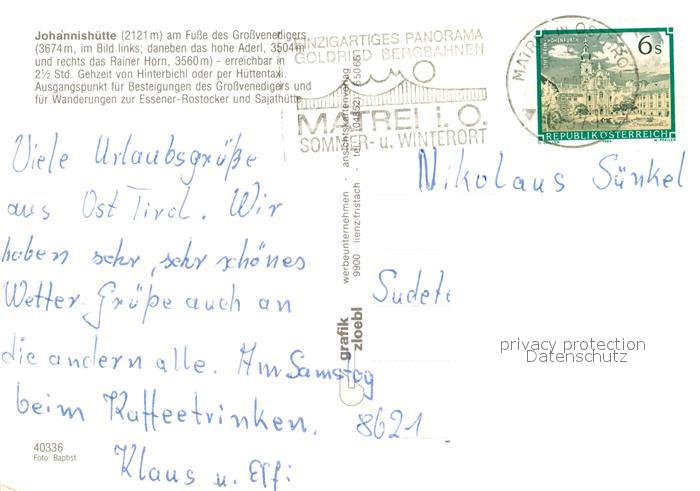 Johannishütte (2121 m) am Fuße des Großvenedigers
(3674 m, im Bild links; daneben das hohe Aderl, 3504 m
und rechts das Rainer Horn, 3560 m) - erreichbar in
2½ Std. Gehzeit von Hinterbichl oder per Hüttentaxi.
Ausgangspunkt für Besteigungen des Großvenedigers und
für Wanderungen zur Essener-Rostocker und Sajathütte
EINZIGARTIGES PANORAMA
GOLDRIED BERGBAHNEN
MATREI i. O.
SOMMER- u. WINTERORT
MATREI IN OSTTIROL
6 S
REPUBLIK ÖSTERREICH
Viele Urlaubsgrüße
aus Ost Tirol. Wir
haben sehr, sehr schönes
Wetter. Grüße auch an
die andern alle. Am Samstag
beim Kaffeetrinken.
Klaus u. Effi
werbeunternehmen - ansichtskartenverlag
9900 lienz/tristach - tel.
grafik
zloebl
Nikolaus Sünkel
Sudete
8621
privacy protection
Datenschutz
40336
Foto: Baptist